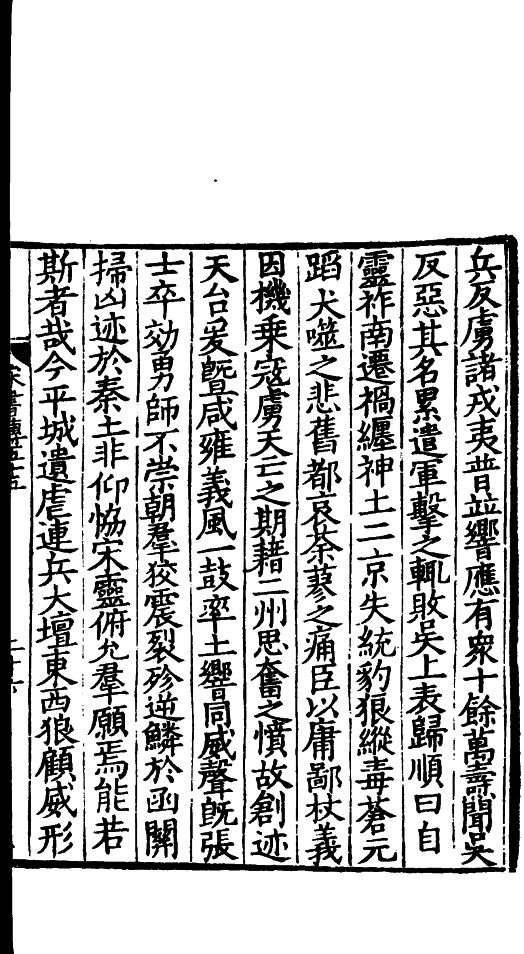 兵反虜諸戎夷普並響應有衆十餘萬燾聞吳
反惡其名累遣軍擊之輒敗吳上表歸順曰自
靈祚南遷禍纏神土二京失統豹狼縱毒蒼元
蹈犬噬之悲舊都哀荼蓼之痛臣以庸鄙杖義
因機乗寇虜天亡之期藉二州思奮之憤故創迹
天台爰曁咸雍義風一鼓率土響同威聲既張
士卒効勇師不崇朝羣狡震裂殄逆鱗於函關
掃凶迹於秦土非仰恊宋靈俯允羣願焉能若
斯者哉今平城遺虐連兵大壇東西狼顧威形
宋書傳五十五
二十六